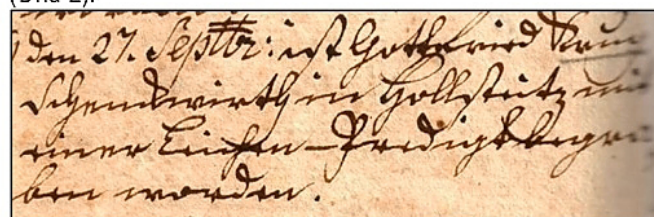 (Bild 2).
den 27. Septbr: ist Gottfried
Schenckwirth in Gollschütz mit
einer Leichen-Predigt begra
ben worden.